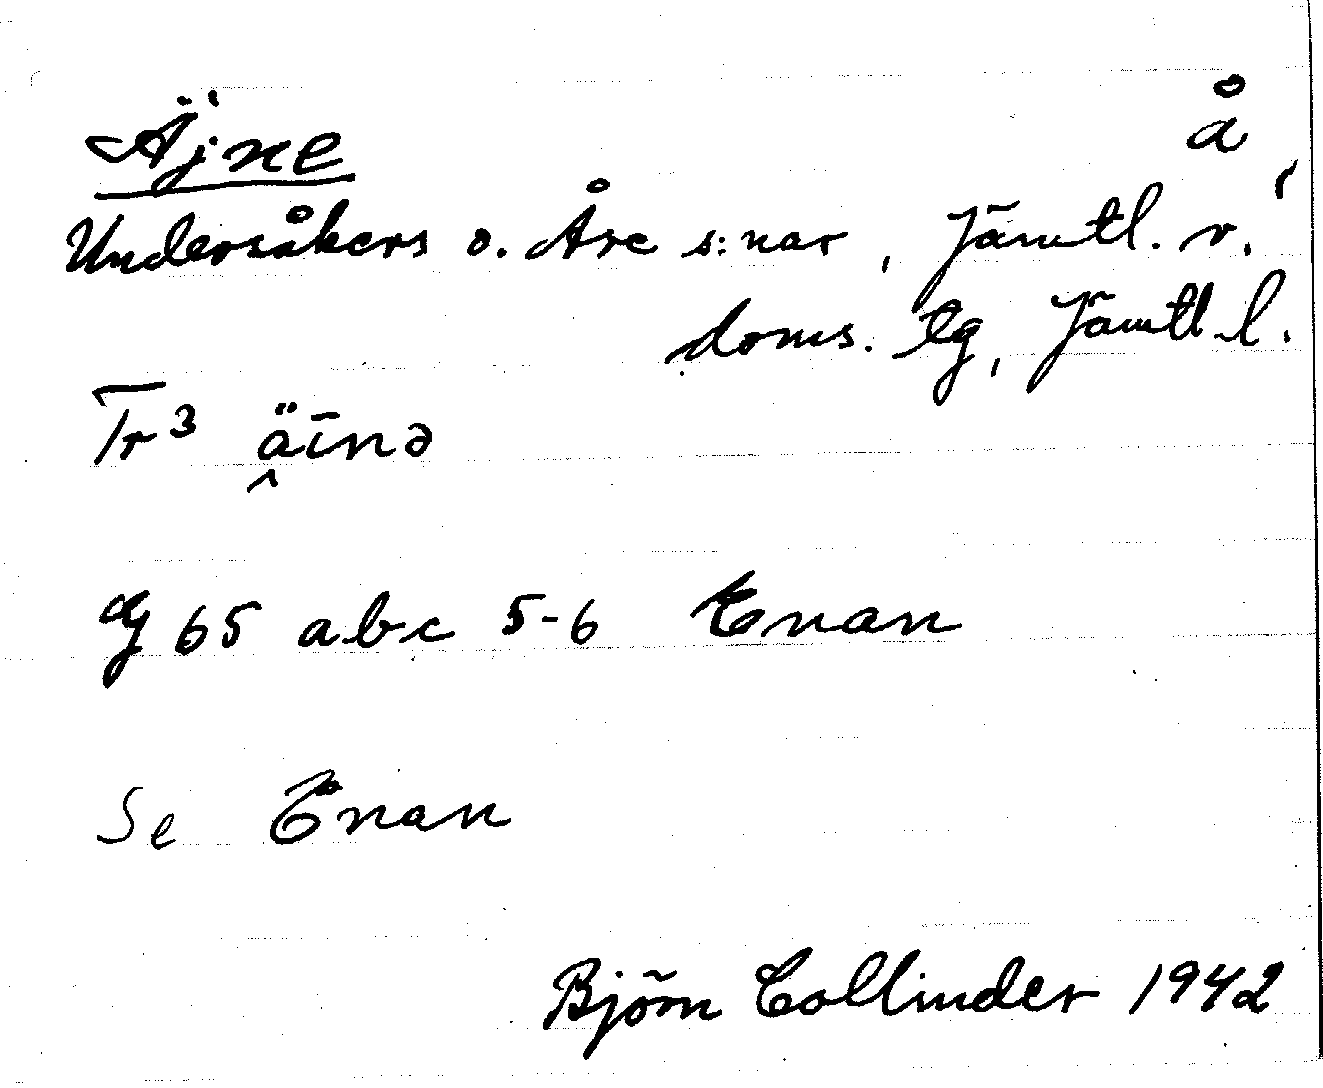 Äjne å
Undersåkers o. Åre s:nar, Jämtl. v.
doms. tg, Jämtl. l.
Tr³ ä̭īnə
G 65 abc 5-6 Enan
Se Enan
Björn Collinder 1942